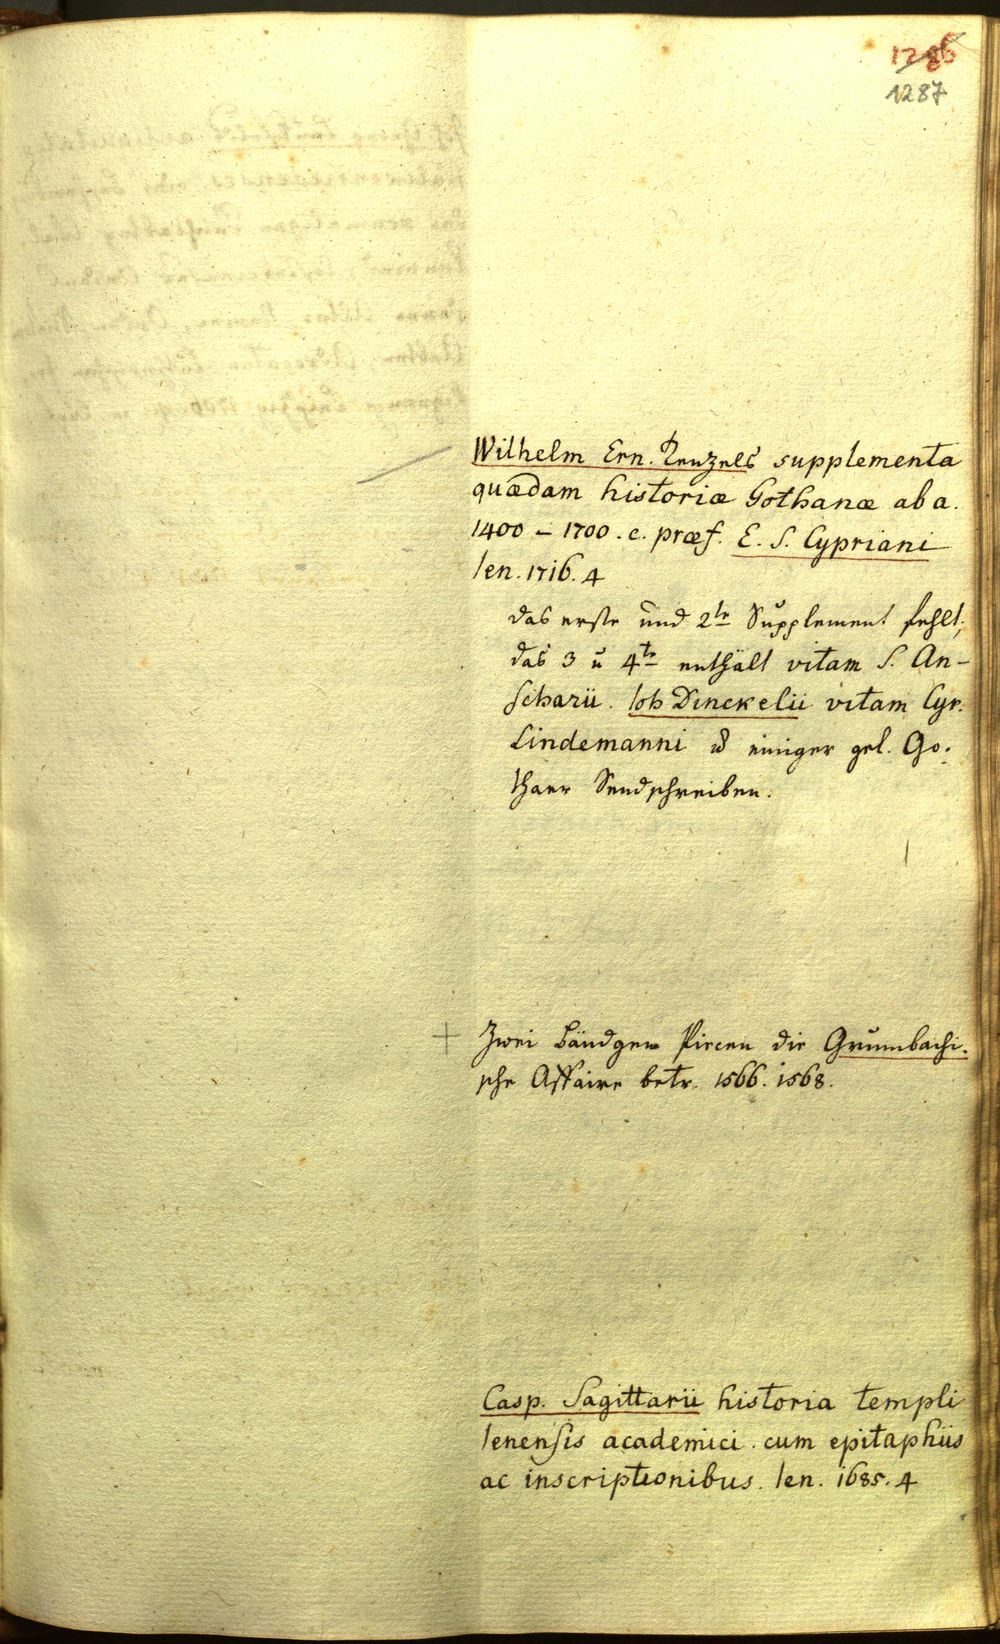 1286
1287
Wilhelm Ern. Tenzels supplementa
quædam historiæ Gothanæ ab a.
1400 – 1700. c. præf. E. S. Cypriani
Ien. 1716. 4
das erste und 2te Supplement fehlt,
das 3 u 4te enthält vitam S. An-
scharii. Ioh Dinckelii vitam Cyr.
Lindemanni u einiger gel. Go-
thaer Sendschreiben.
Zwei Bändgen Piecen die Grumbachi-
sche Affaire betr. 1566. 1568.
Casp. Sagittarii historia templi
Ienensis academici cum epitaphiis
ac inscriptionibus. Ien. 1685. 4